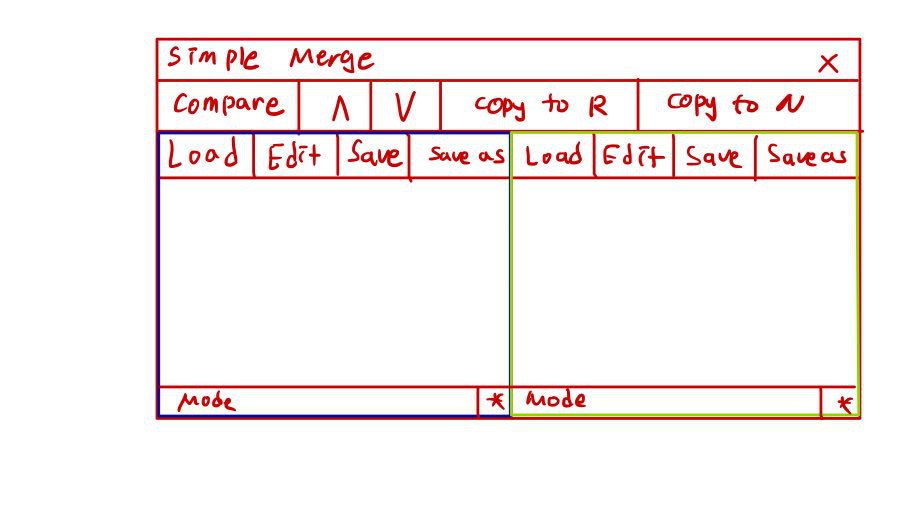 Simple Merge X
Compare Λ V copy to R copy to N
Load Edit Save save as Load Edit Save Save as
Mode * Mode *